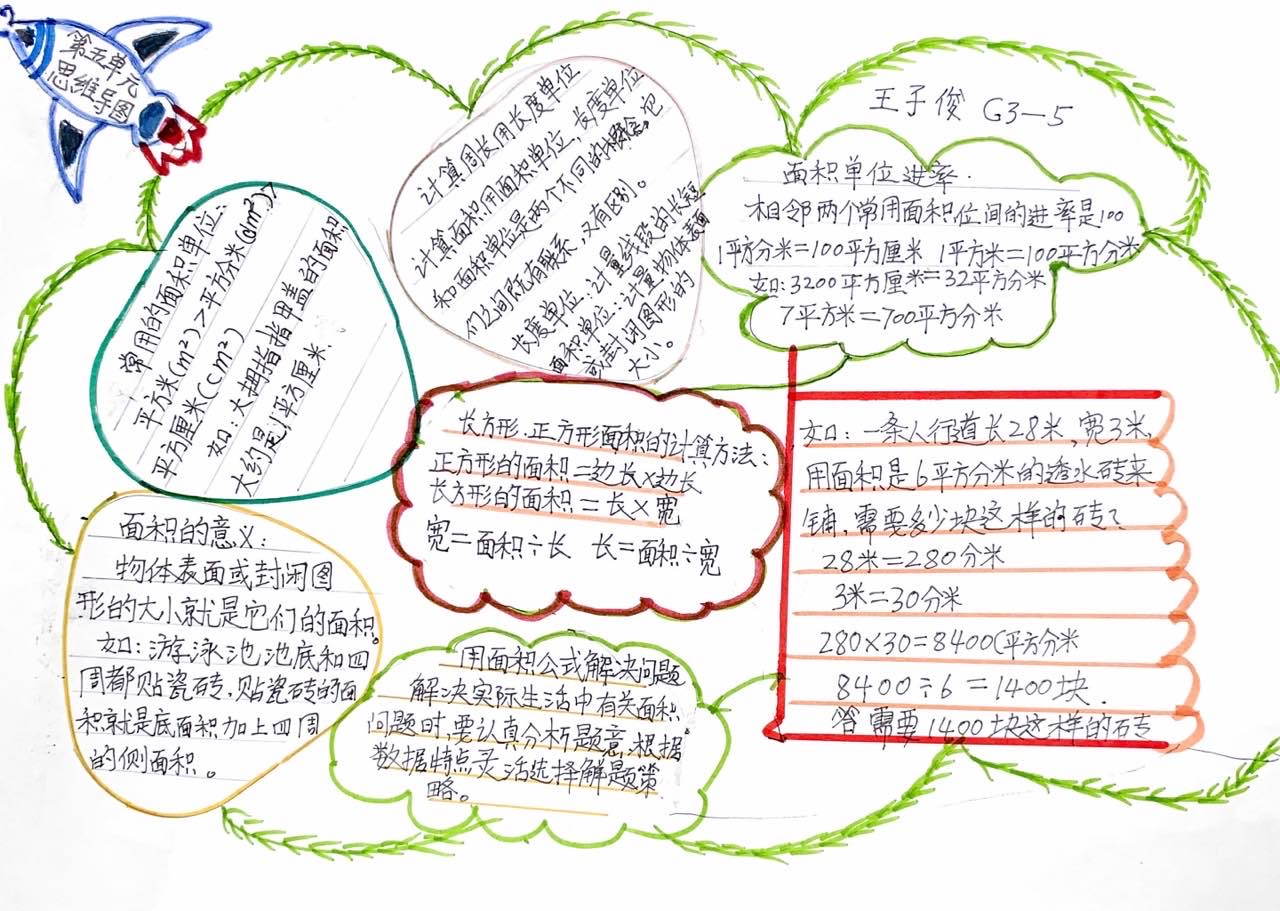 第五单元
思维导图
王子俊 G3-5
常用的面积单位:
平方米(m²)>平方分米(dm²)>
平方厘米(cm²)
如:大拇指指甲盖的面积
大约是1平方厘米.
计算周长用长度单位
计算面积用面积单位,长度单位
和面积单位是两个不同的概念。它
们之间既有联系,又有区别。
长度单位:计量线段的长短
面积单位:计量物体表面
或封闭图形的
大小。
面积单位进率.
相邻两个常用面积位间的进率是100
1平方分米=100平方厘米 1平方米=100平方米
如:3200平方厘米=32平方米
7平方米=700平方分米
长方形.正方形面积的计算方法:
正方形的面积=边长×边长
长方形的面积=长×宽
宽=面积÷长 长=面积÷宽
如:一条人行道长28米,宽3米,
用面积是6平方分米的透水砖来
铺,需要多少块这样的砖?
28米=280分米
3米=30分米
280×30=8400(平方分米
8400÷6=1400块.
答需要1400块这样的砖
面积的意义:
物体表面或封闭图
形的大小就是它们的面积。
如:游泳池池底和四
周都贴瓷砖,贴瓷砖的面
积就是底面积加上四周
的侧面积。
用面积公式解决问题
解决实际生活中有关面积
问题时,要认真分析题意,根据
数据特点灵活选择解题策
略。